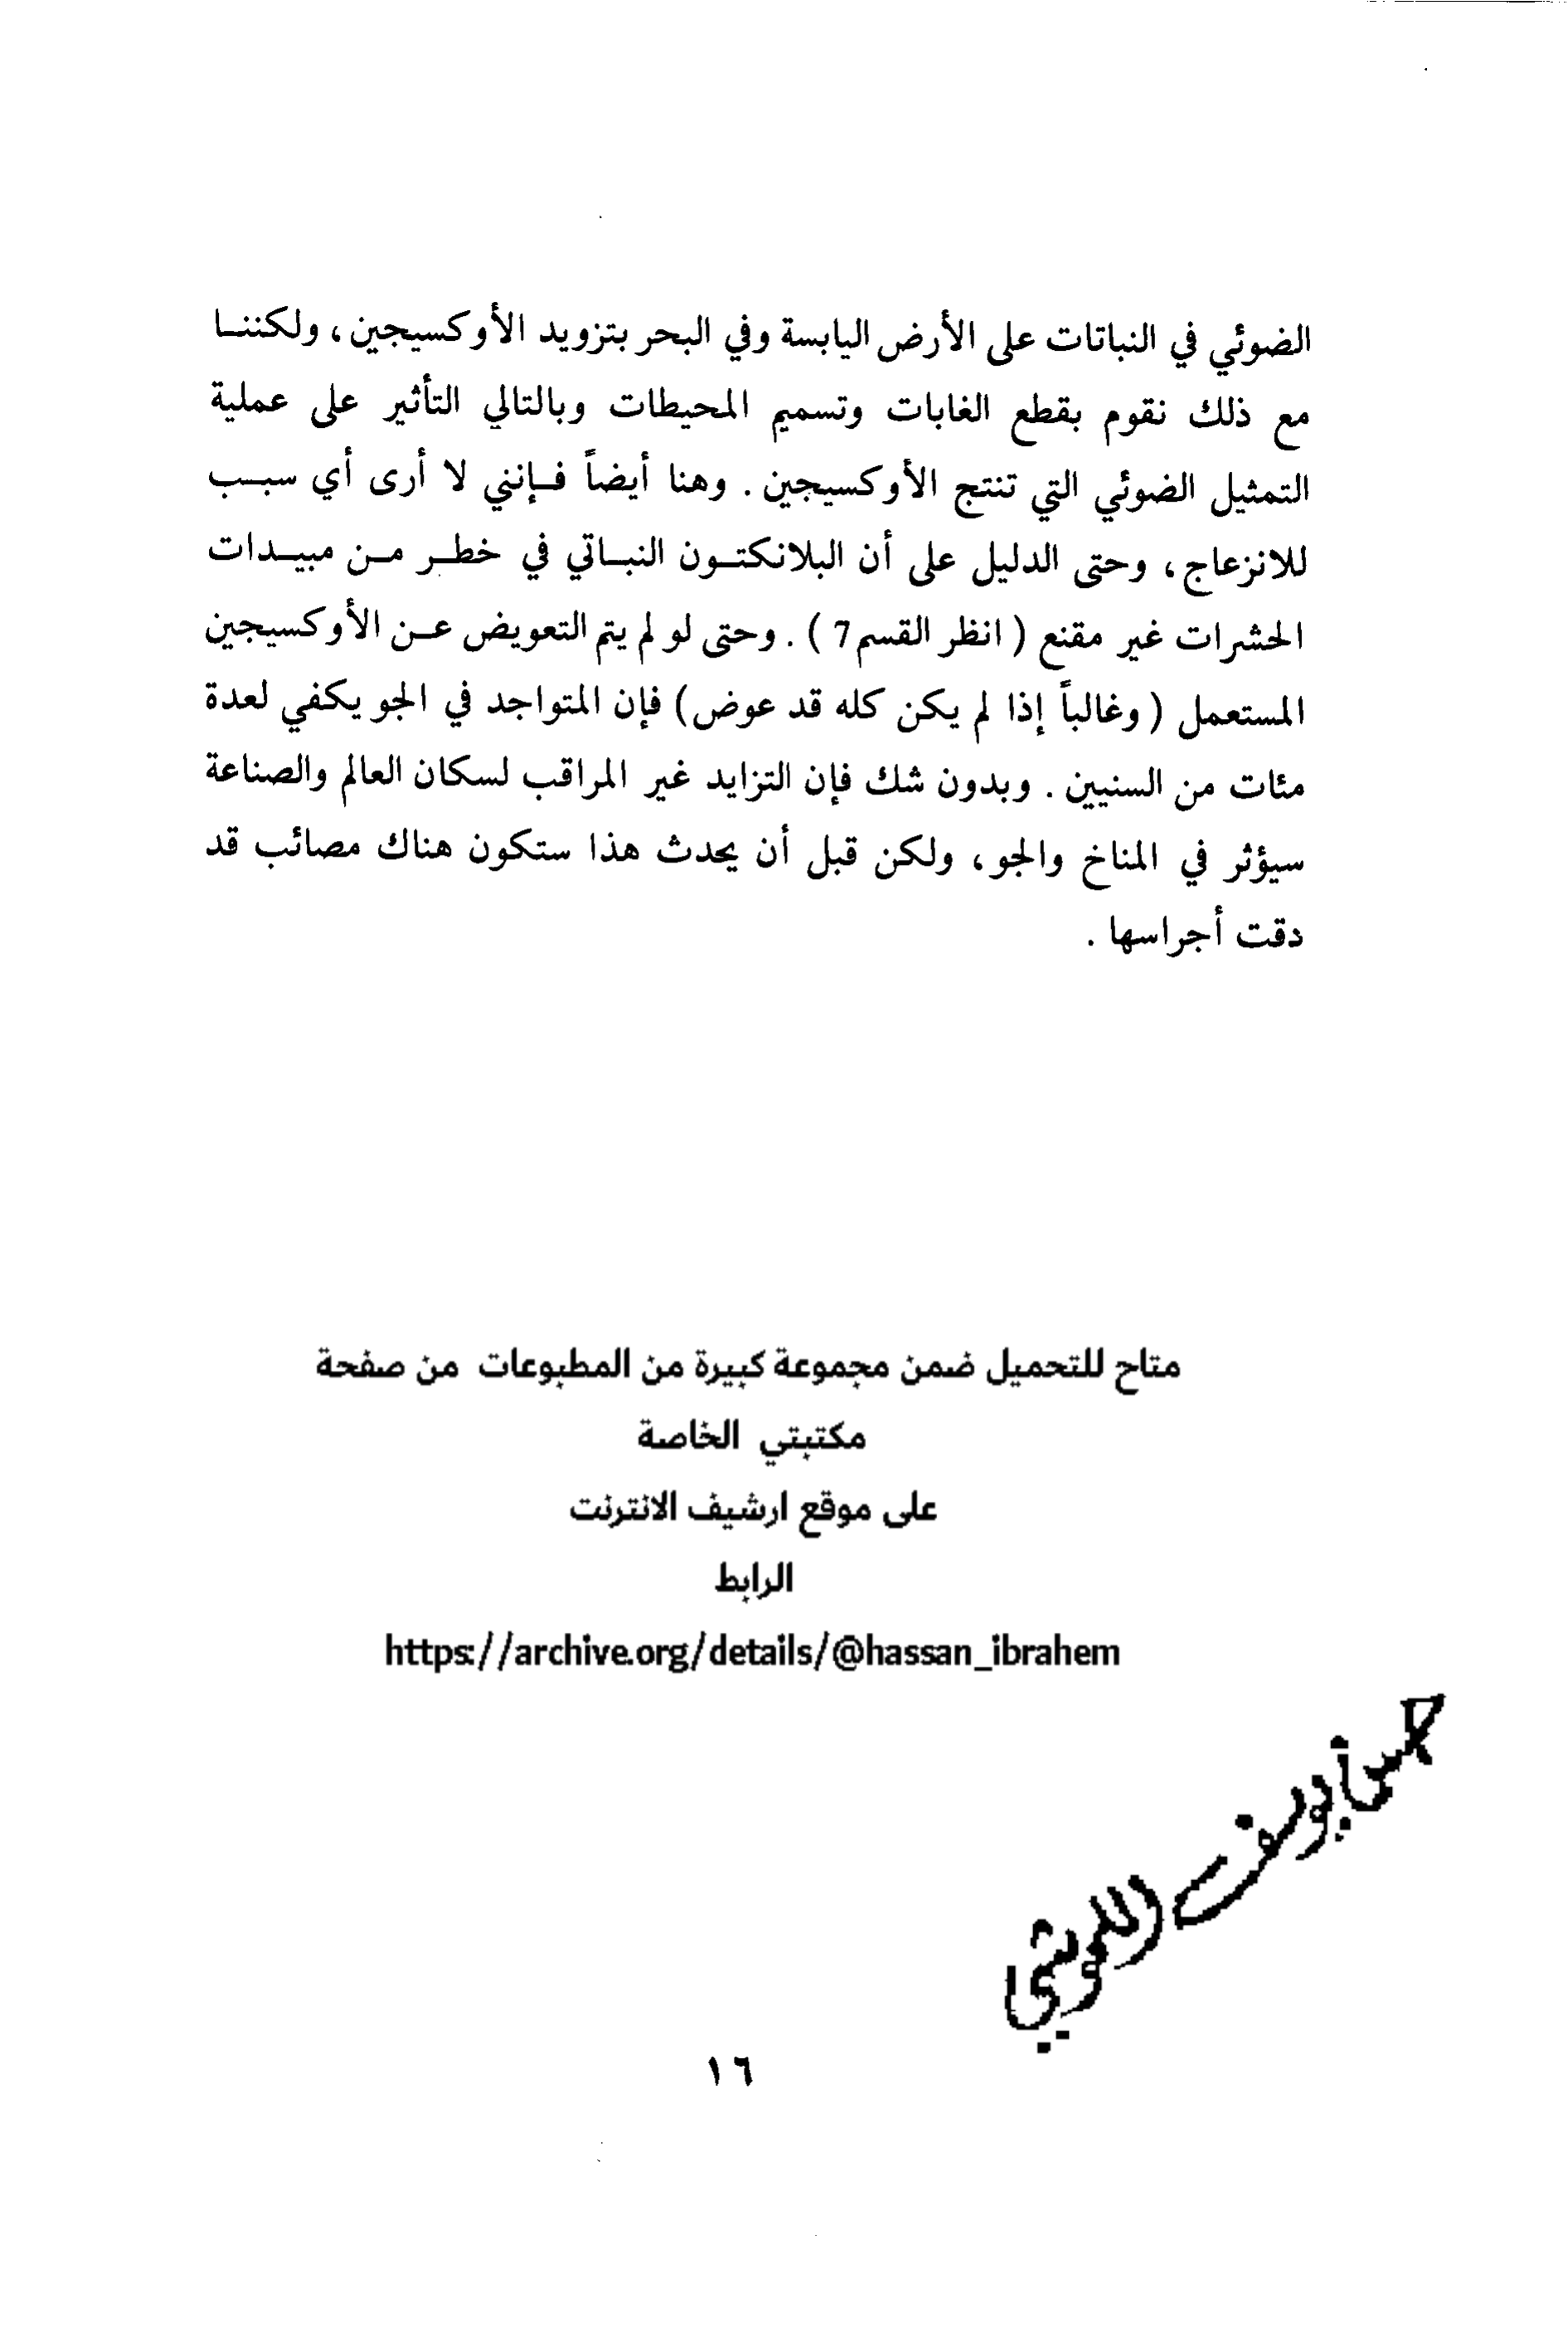 الضوئي في النباتات على الأرض اليابسة وفي البحر بتزويد الأوكسيجين، ولكننا
مع ذلك نقوم بقطع الغابات وتسميم المحيطات وبالتالي التأثير على عملية
التمثيل الضوئي التي تنتج الأوكسيجين . وهنا أيضاً فإنني لا أرى أي سبب
للانزعاج، وحتى الدليل على أن البلانكتون النباتي في خطر من مبيدات
الحشرات غير مقنع ( انظر القسم 7 ) . وحتى لو لم يتم التعويض عن الأوكسيجين
المستعمل ( وغالباً إذا لم يكن كله قد عوض ) فإن المتواجد في الجو يكفي لعدة
مئات من السنيين . وبدون شك فإن التزايد غير المراقب لسكان العالم والصناعة
سيؤثر في المناخ والجو، ولكن قبل أن يحدث هذا ستكون هناك مصائب قد
دقت أجراسها .
متاح للتحميل ضمن مجموعة كبيرة من المطبوعات من صفحة
مكتبتي الخاصة
على موقع ارشيف الانترنت
الرابط
https://archive.org/details/@hassan_ibrahem
١٦